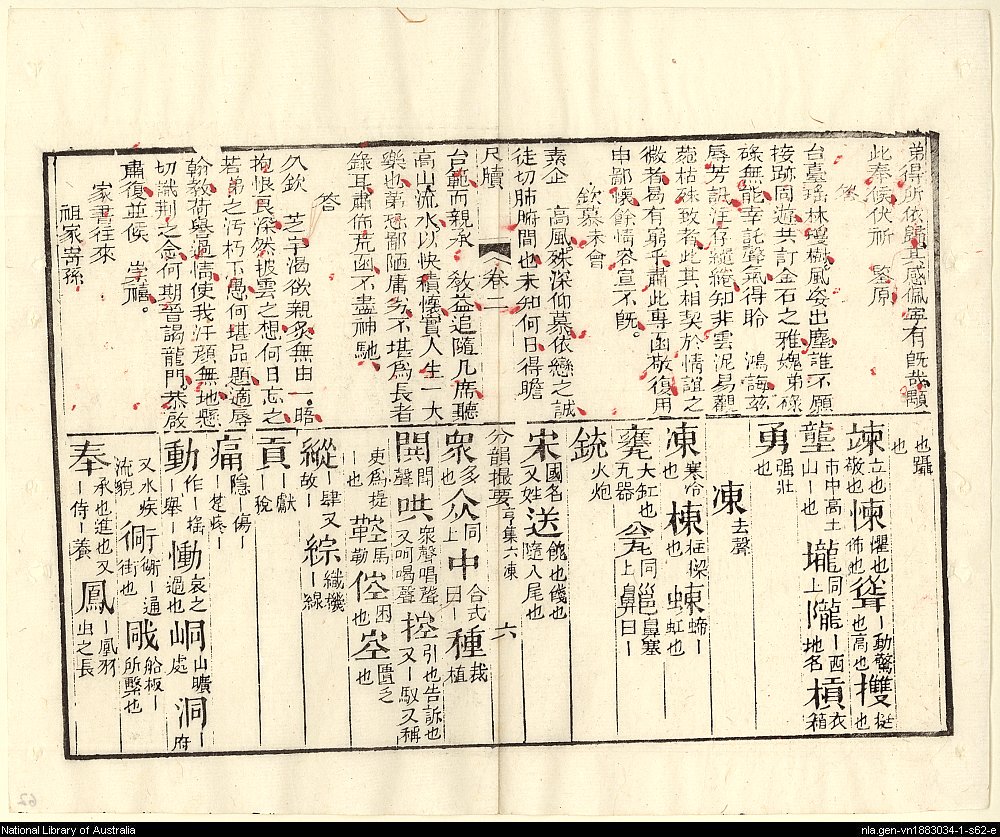 弟得所依歸其感佩寔有旣哉顒
此奉候伏祈　鑒原
答
台臺瑤林瓊樹風姿出塵誰不願
接跡同遊共訂金石之雅媿弟碌
碌無能幸託聲氣得聆　鴻誨茲
辱芳訊注仔縋綣知非雲泥易觀
菀枯殊致者此其相契於情誼之
微者曷有窮乎肅此專函敬復用
申鄙懷餘情容宣不旣
欽慕未會
素企　高風殊深仰慕依戀之誠
徒切肺腑間也未知何日得瞻
尺牘　卷二
台範而親承　敎益追隨几席聽
高山流水以快積懷實人生一大
樂也第恐鄙陋庸劣不堪爲長者
錄耳肅佈荒函不盡神馳
答
久欽　芝宇渴欲親炙無由一晤
抱恨良深然披雲之想何日忘之
若弟之污朽下愚何堪品題適辱
翰敎荷舉過情使我汗顏無地懸
切識荆之念何期晉謁龍門恭啟
肅復並候　崇禧
家書往來
祖家寄孫
也 躡也
竦 立也敬也 悚 懼也怖也 聳 ｜動驚也高也 㩳 挺也
壟 市中高土山｜也 壠 同上 隴 ｜西地名 槓 衣箱
勇 强壯也
凍 去聲
凍 寒冷也 棟 ｜樑也 蝀 蝃｜虹也
甕 大缸也瓦器 瓮 同上 齆 鼻塞鼻曰｜
銃 火炮
宋 國名又姓 送 餽也餞也隨入尾也
分韻撮要 亨集六凍　六
衆 多也 众 同上 中 合式曰｜ 種 栽植
鬨 鬥聲 哄 衆聲唱聲又呵喝聲 控 引也告訴也又｜馭又稱
鞚 馬勒 倥 困也 㝫 匱乏也
縱 ｜肆又故｜ 綜 織機｜線
貢 ｜獻｜稅
痛 隱｜傷｜楚｜
動 作｜搖｜舉｜ 慟 哀之過也 峒 山曠處 洞 ｜府
又水疾流貌 衕 衚｜通街也 戙 船板｜所繫也
奉 承也進也又｜侍｜養 鳳 ｜凰羽虫之長
National Library of Australia
nla.gen-vn1883034-1-s62-e